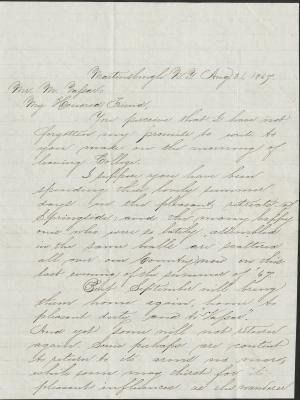 Martinsburgh N.Y. Aug 31, 1867.
Mr. M. Vassar,
My Honored Friend,
You perceive that I have not
forgotten my promise to write to
you made on the morning of
leaving College.
I suppose you have been
spending these lovely summer
days in the pleasant retreats of
Springside; and the many happy
ones who were so lately assembled
in the same halls are scattered
all over our Country, now on this
last evening of the summer of '67.
But September will bring
them home again, home to
pleasant duty, and to "Vassar".
And yet some will not return
again. Some perhaps are content
to return to its arms no more,
while some may thirst for its
pleasant influences as the wanderer